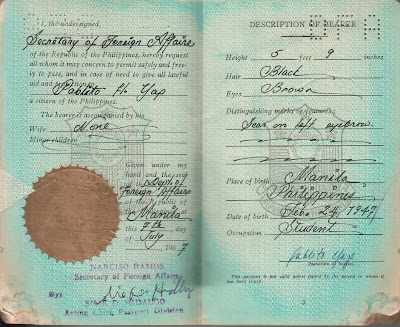 I, the undersigned,
Secretary of Foreign Affairs
of the Republic of the Philippines, hereby request
all whom it may concern to permit safely and free-
ly to pass, and in case of need to give all lawful
aid and protection to
Pablito H. Yap
a citizen of the Philippines.
The bearer is accompanied by his
Wife None
Minor children
Given under my
hand and the seal
of the Dept. of
Foreign Affairs
of the Republic of
Manila
this 7th
day of July
1967
NARCISO RAMOS
Secretary of Foreign Affairs
By:
D. HIDALGO
Acting Chief, Passport Division
DESCRIPTION OF BEARER
Height 5 feet 9 inches
Hair Black
Eyes Brown
Distinguishing marks or features:
Scar on left eyebrow.
Place of birth Manila
Philippines
Date of birth Feb. 24, 1947
Occupation Student
Pablito Yap
Signature of bearer
This passport is not valid unless signed by the person to whom it
has been issued.
3